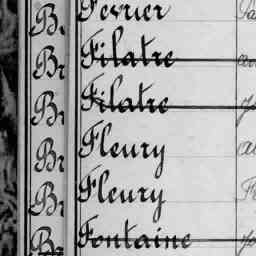 Br Février
Br Filatre
Br Filatre
Br Fleury
Br Fleury
Br Fontaine